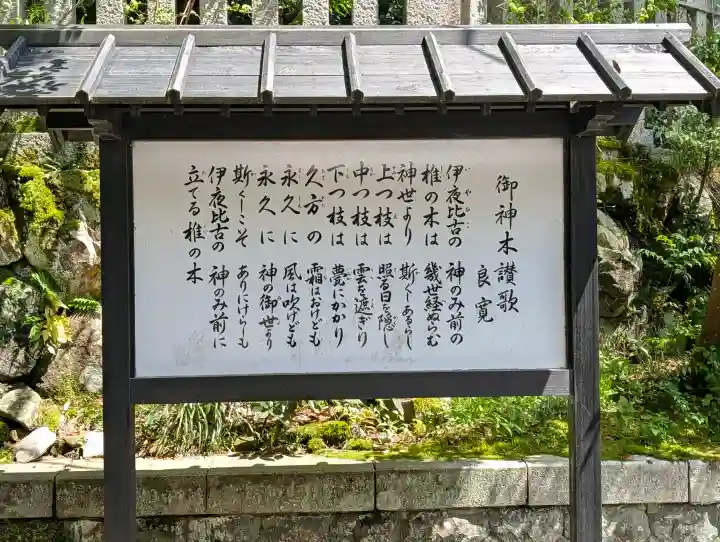 御神木讃歌
良寛
伊夜比古の 神のみ前の
椎の木は 幾世経ぬらむ
神世より 斯くしあるらし
上つ枝は 照る日を隠し
中つ枝は 雲を遮ぎり
下つ枝は 甍にかかり
久方の 霜はおけども
永久に 風は吹けども
永久に 神の御世より
斯くこそ ありにけらしも
伊夜比古の 神のみ前に
立てる椎の木